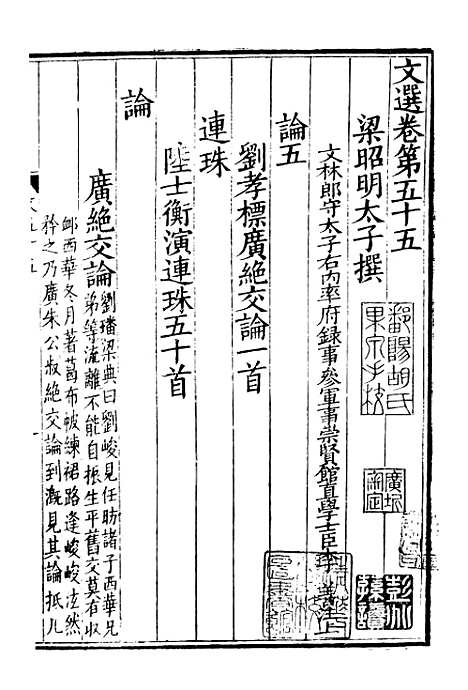 文選卷第五十五
梁昭明太子撰
文林郎守太子右内率府録事參軍事崇賢館直學士臣李善注上
論五
劉孝標廣絶交論一首
連珠
陸士衡演連珠五十首
論
廣絶交論
劉璠梁典曰劉峻見任昉諸子西華兄
弟等流離不能自振生平舊交莫有收
䘏西華冬月著葛布帔練裙路逢峻峻泫然
矜之乃廣朱公叔絶交論到漑見其論抵几
鄱陽胡氏
果泉手校